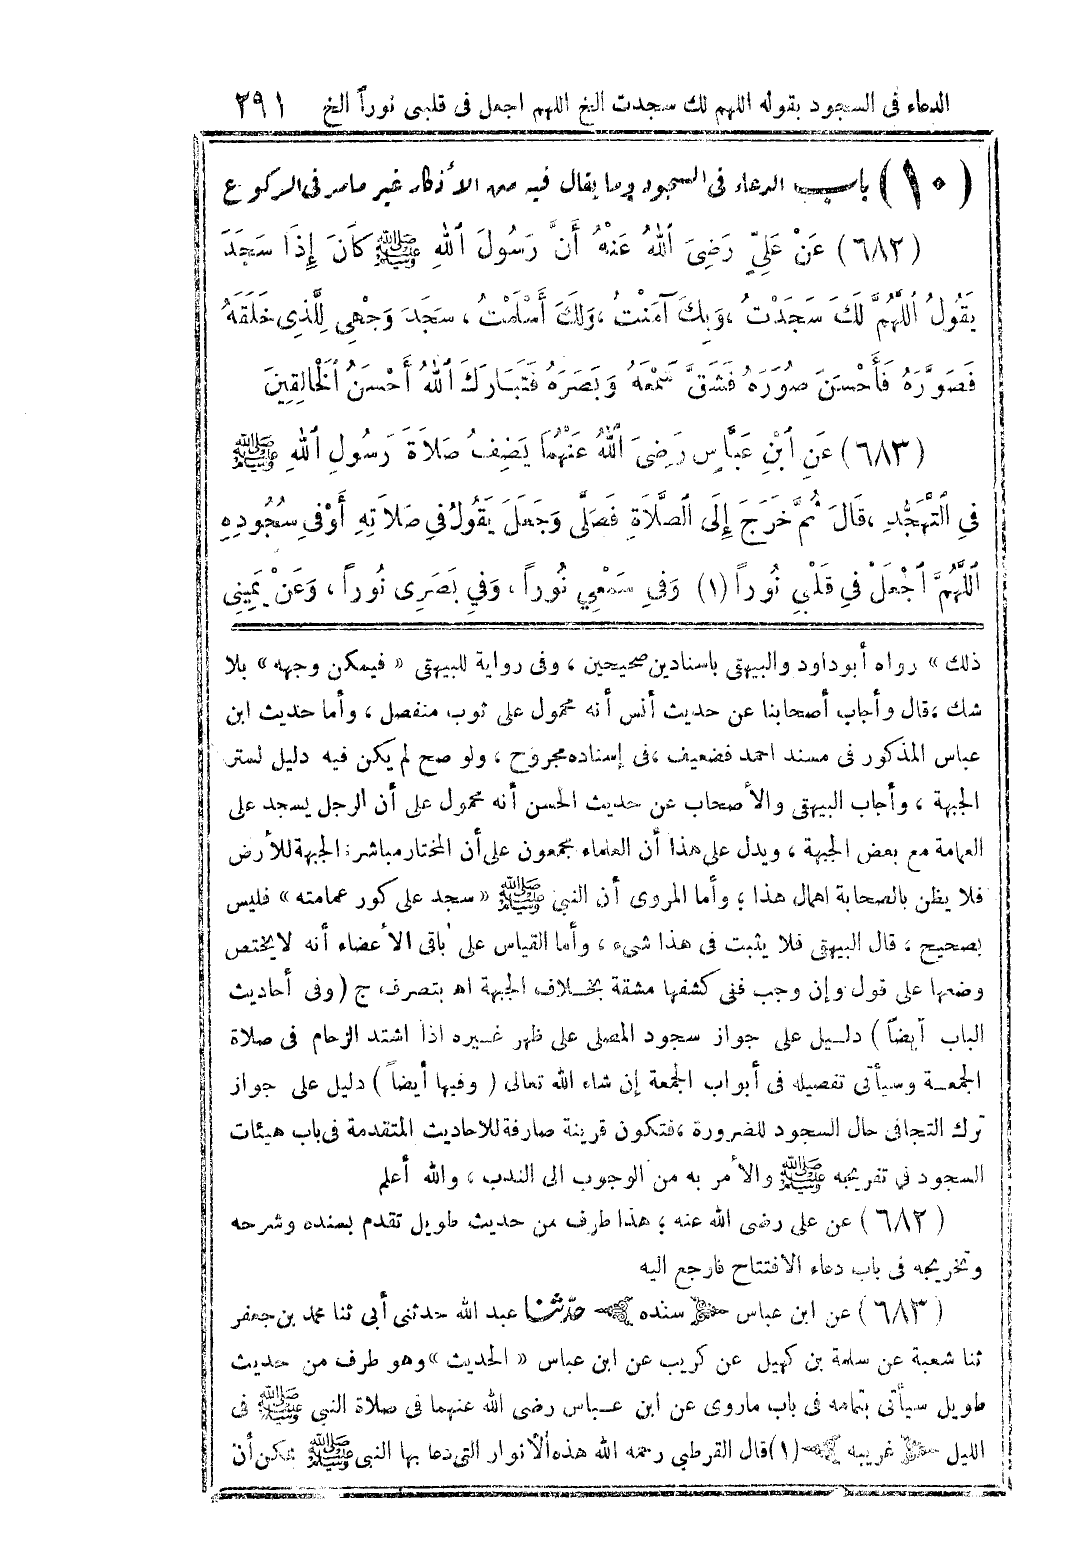 الدعاء فى السجود بقوله اللهم لك سجدت الخ اللهم اجعل فى قلبى نوراً الخ ٢٩١
(١٠) باب الدعاء فى السجود وما يقال فيه من الأذكار غير ما مر فى الركوع
(٦٨٢) عَنْ عَلِيٍّ رَضِيَ اللهُ عَنْهُ أَنَّ رَسُولَ اللهِ ﷺ كَانَ إِذَا سَجَدَ
يَقُولُ اللّٰهُمَّ لَكَ سَجَدْتُ ، وَبِكَ آمَنْتُ ، وَلَكَ أَسْلَمْتُ ، سَجَدَ وَجْهِي لِلَّذِي خَلَقَهُ
فَصَوَّرَهُ فَأَحْسَنَ صُوَرَهُ فَشَقَّ سَمْعَهُ وَبَصَرَهُ فَتَبَارَكَ اللهُ أَحْسَنُ الْخَالِقِينَ
(٦٨٣) عَنِ ابْنِ عَبَّاسٍ رَضِيَ اللهُ عَنْهُمَا يَصِفُ صَلَاةَ رَسُولِ اللهِ ﷺ
فِي التَّهَجُّدِ ، قَالَ ثُمَّ خَرَجَ إِلَى الصَّلَاةِ فَصَلَّى وَجَعَلَ يَقُولُ فِي صَلَاتِهِ أَوْ فِي سُجُودِهِ
اللّٰهُمَّ اجْعَلْ فِي قَلْبِي نُوراً (١) وَفِي سَمْعِي نُوراً ، وَفِي بَصَرِى نُوراً ، وَعَنْ يَمِينِى
ذلك » رواه أبو داود والبيهقى باسنادين صحيحين ، وفى رواية للبيهقى « فيمكن وجهه » بلا
شك ، قال وأجاب أصحابنا عن حديث أنس أنه محمول على ثوب منفصل ، وأما حديث ابن
عباس المذكور فى مسند احمد فضعيف ، فى إسناده مجروح ، ولو صح لم يكن فيه دليل لستر
الجبهة ، وأجاب البيهقى والأصحاب عن حديث الحسن أنه محمول على أن الرجل يسجد على
العمامة مع بعض الجبهة ، ويدل على هذا أن العلماء مجمعون على أن المختار مباشرة الجبهة للأرض
فلا يظن بالصحابة اهمال هذا ؛ وأما المروى أن النبى ﷺ « سجد على كور عمامته » فليس
بصحيح ، قال البيهقى فلا يثبت فى هذا شىء ، وأما القياس على باقى الأعضاء أنه لا يختص
وضعها على قول وإن وجب ففى كشفها مشقة بخلاف الجبهة اه بتصرف ج ( وفى أحاديث
الباب أيضاً ) دليل على جواز سجود المصلى على ظهر غيره اذا اشتد الزحام فى صلاة
الجمعة وسيأتى تفصيله فى أبواب الجمعة إن شاء الله تعالى ( وفيها أيضاً ) دليل على جواز
ترك التجافى حال السجود للضرورة ، فتكون قرينة صارفة للاحاديث المتقدمة فى باب هيئات
السجود في تفريجه ﷺ والأمر به من الوجوب الى الندب ، والله أعلم
(٦٨٢) عن على رضى الله عنه ؛ هذا طرف من حديث طويل تقدم بسنده وشرحه
وتخريجه فى باب دعاء الافتتاح فارجع اليه
(٦٨٣) عن ابن عباس سنده حدّثنا عبد الله حدثنى أبى ثنا محمد بن جعفر
ثنا شعبة عن سلمة بن كهيل عن كريب عن ابن عباس « الحديث » وهو طرف من حديث
طويل سيأتى بتمامه فى باب ماروى عن ابن عباس رضى الله عنهما فى صلاة النبى ﷺ فى
الليل غريبه (١) قال القرطبى رحمه الله هذه الأنوار التى دعا بها النبى ﷺ يمكن أن